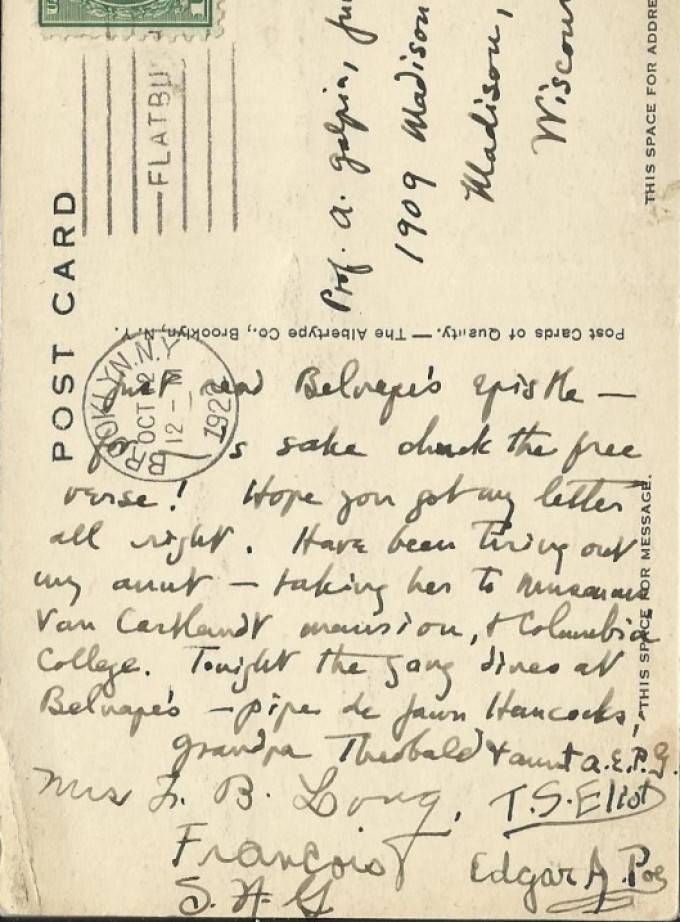 POST CARD
FLATBU
BROOKLYN, N.Y.
OCT 2
12 – M
192
Prof. A. Galpin, Jun
1909 Madison
Madison,
Wiscon
THIS SPACE FOR ADDRE
Post Cards of Quality. — The Albertype Co., Brooklyn, N. Y.
THIS SPACE FOR MESSAGE.
Just read Belnape's epistle —
sake chuck the free
verse! Hope you got my letter
all right. Have been tiring out
my aunt — taking her to museums
Van Cortlandt mansion, & Columbia
College. Tonight the gang dines at
Belnape's — pipe de Jawn Hancocks,
Grandpa Theobald & aunt A.E.P.G.
Mrs F. B. Long, T.S. Eliot
François Edgar A. Poe
S. H. G